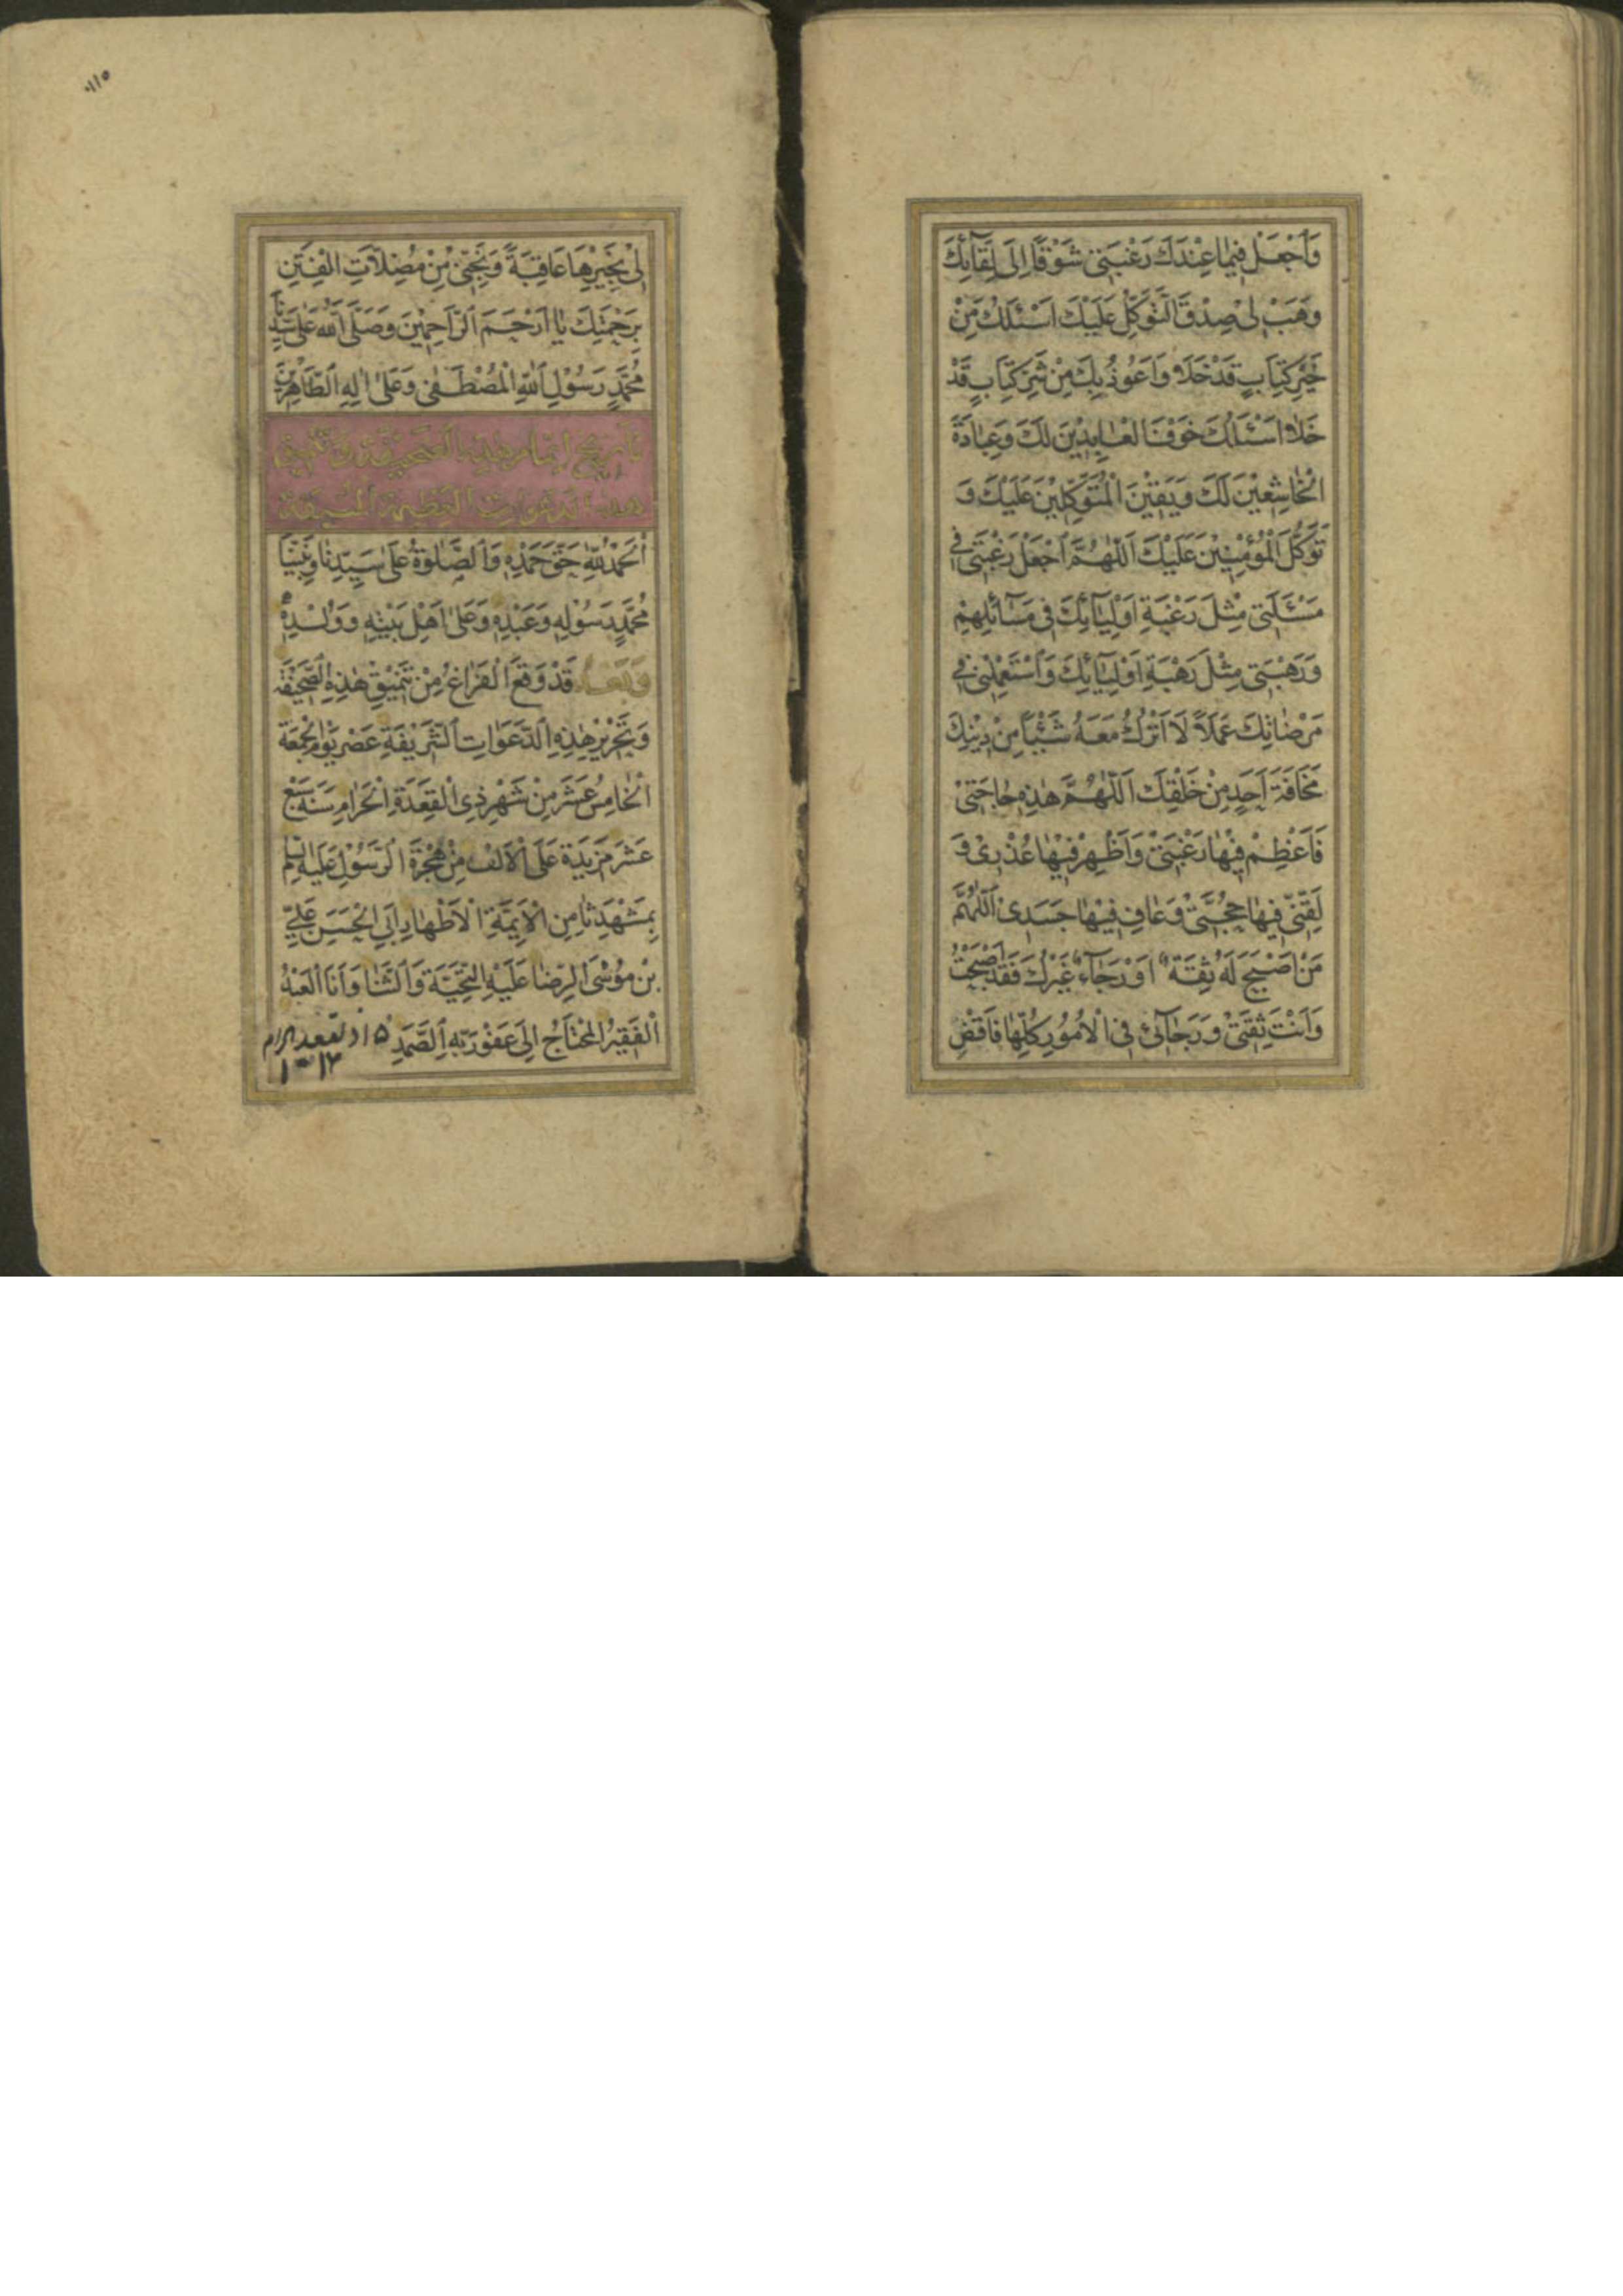 وَاَجْعَلْ فِيمَا عِنْدَكَ رَغْبَتِي شَوْقًا اِلَى لِقَآئِكَ
وَهَبْ لِي صِدْقَ التَّوَكُّلِ عَلَيْكَ اَسْئَلُكَ مِنْ
خَيْرِ كِتَابٍ قَدْ خَلَا وَاَعُوذُ بِكَ مِنْ شَرِّ كِتَابٍ قَدْ
خَلَا اَسْئَلُكَ خَوْفَ الْعَابِدِيْنَ لَكَ وَعِبَادَةَ
الْخَاشِعِيْنَ لَكَ وَيَقِيْنَ الْمُتَوَكِّلِيْنَ عَلَيْكَ وَ
تَوَكُّلَ الْمُؤْمِنِيْنَ عَلَيْكَ اَللّٰهُمَّ اَجْعَلْ رَغْبَتِي فِي
مَسْئَلَتِي مِثْلَ رَغْبَةِ اَوْلِيَآئِكَ فِي مَسَآئِلِهِمْ
وَرَهْبَتِي مِثْلَ رَهْبَةِ اَوْلِيَآئِكَ وَاَسْتَعْمِلْنِي فِي
مَرْضَاتِكَ عَمَلًا لَا اَتْرُكُ مَعَهُ شَيْئًا مِنْ دِيْنِكَ
مَخَافَةَ اَحَدٍ مِنْ خَلْقِكَ اَللّٰهُمَّ هٰذِهِ حَاجَتِيْ
فَاَعْظِمْ فِيْهَا رَغْبَتِيْ وَاَظْهِرْ فِيْهَا عُذْرِيْ وَ
لَقِّنِّي فِيهَا حُجَّتِيْ وَعَافِ فِيْهَا جَسَدِيْ اَللّٰهُمَّ
مَنْ اَصْبَحَ لَهُ ثِقَةٌ اَوْ رَجَآءٌ غَيْرُكَ فَقَدْ اَصْبَحْتُ
وَاَنْتَ ثِقَتِيْ وَرَجَآئِيْ فِي الْاُمُوْرِ كُلِّهَا فَاقْضِ
١١٥
لِيْ بِخَيْرِهَا عَاقِبَةً وَنَجِّنِيْ مِنْ مُضِلَّاتِ الْفِتَنِ
بِرَحْمَتِكَ يَا اَرْحَمَ الرَّاحِمِيْنَ وَصَلَّى اللّٰهُ عَلَى سَيِّدِنَا
مُحَمَّدٍ رَسُوْلِ اللّٰهِ الْمُصْطَفٰى وَعَلٰى اٰلِهِ الطَّاهِرِيْنَ
تاريخ اتمام هذه الصحيفة و
هذه الدعوات العظيمة
اَلْحَمْدُ لِلّٰهِ حَقَّ حَمْدِهِ وَالصَّلٰوةُ عَلٰى سَيِّدِنَا وَنَبِيِّنَا
مُحَمَّدٍ رَسُوْلِهِ وَعَبْدِهِ وَعَلٰى اَهْلِ بَيْتِهِ وَوُلْدِهِ
وَبَعْدُ قَدْ وَقَعَ الْفَرَاغُ مِنْ تَنْمِيْقِ هٰذِهِ الصَّحِيْفَةِ
وَتَحْرِيْرِ هٰذِهِ الدَّعَوَاتِ الشَّرِيْفَةِ عَصْرَ يَوْمِ الْجُمْعَةِ
الْخَامِسَ عَشَرَ مِنْ شَهْرِ ذِي الْقَعْدَةِ الْحَرَامِ سَنَةَ سَبْعَ
عَشَرَ مَزِيْدَةً عَلَى الْاَلْفِ مِنْ هِجْرَةِ الرَّسُوْلِ عَلَيْهِ السَّلَام
بِمَشْهَدِ ثَامِنِ الْاَئِمَّةِ الْاَطْهَارِ اَبِي الْحَسَنِ عَلِيِّ
بْنِ مُوْسَى الرِّضَا عَلَيْهِ التَّحِيَّةُ وَالثَّنَا وَاَنَا الْعَبْدُ
الْفَقِيْرُ الْمُحْتَاجُ اِلَى عَفْوِ رَبِّهِ الصَّمَدِ ١٥ ذو لقعده الحرام
١٠١٧